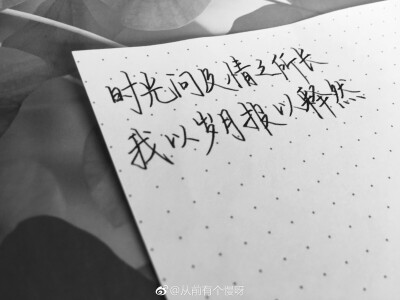 时光问及情之所长
我以岁月报以释然
@从前有个傻呀